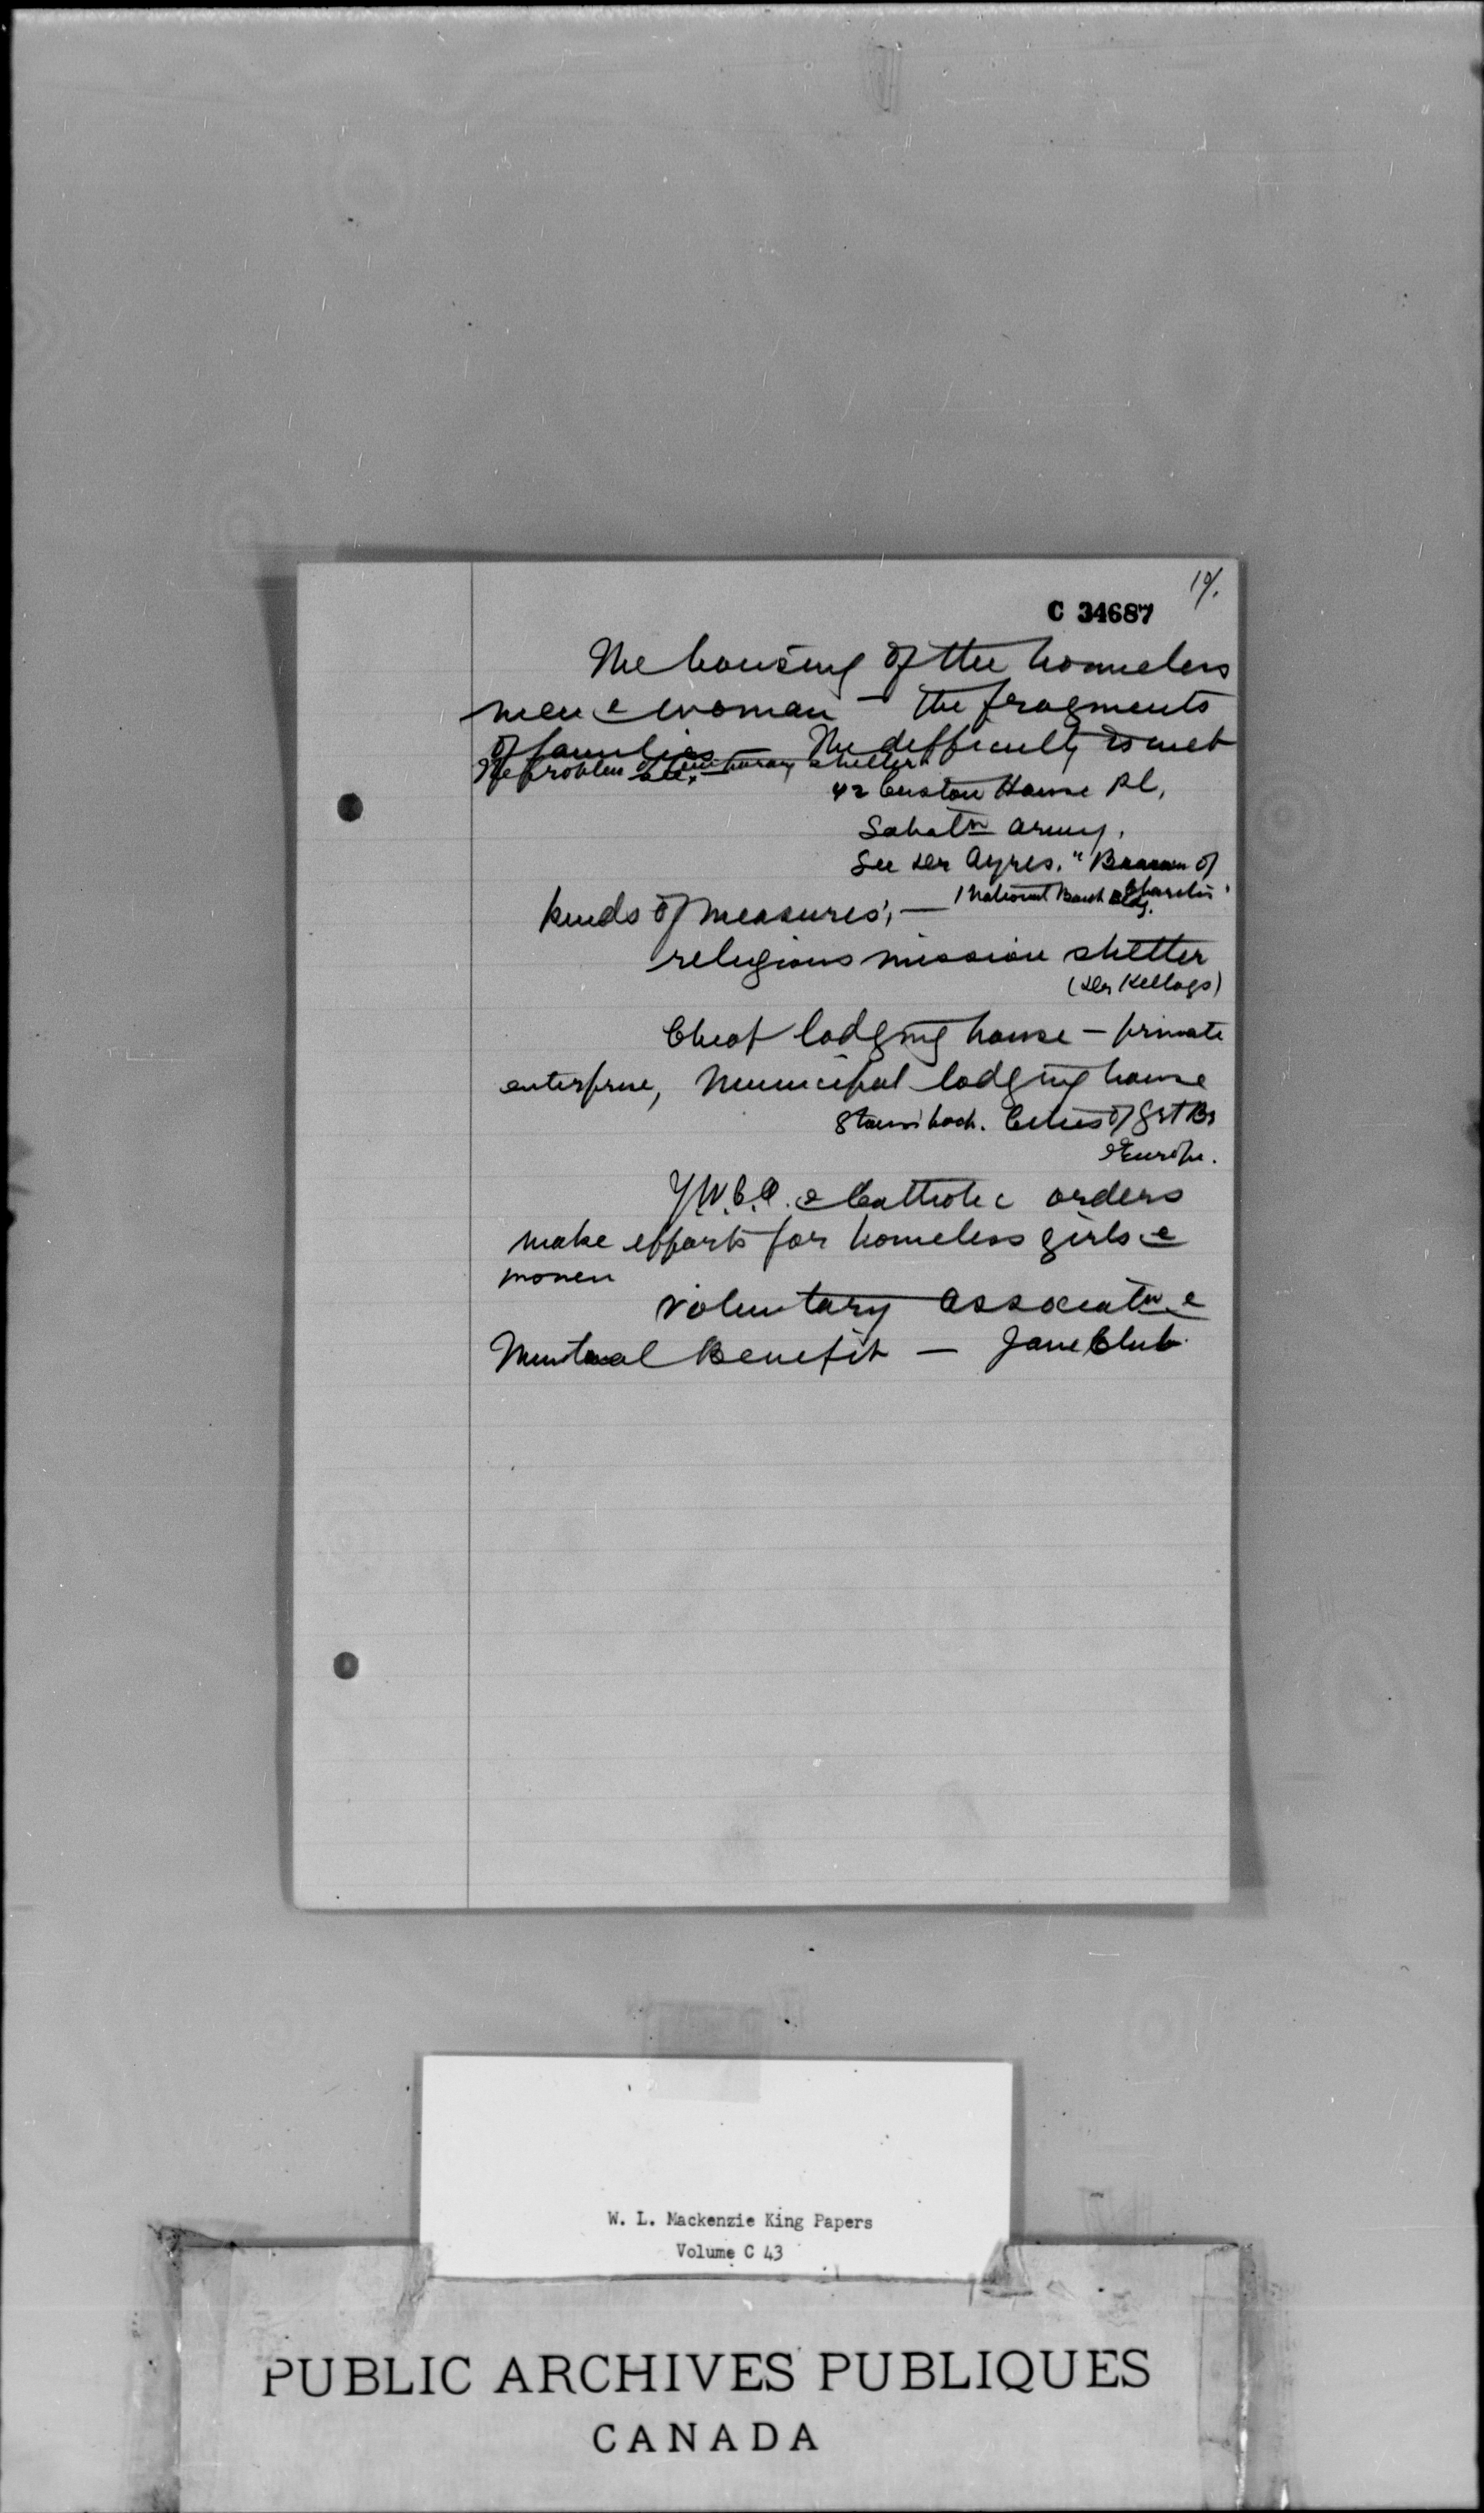 19/.
C 34687
The housing of the homeless
men & woman — the fragments
of families — The difficulty is met
The problem of temporary shelter
42 Custom House Pl,
Salvatn Army.
See Mr Ayres. "Bureau of
Charities"
1 National Bank Bldg.
kinds of measures; —
religious mission shelter
(Mr Kellogs)
Cheap lodging house — private
enterprise, Municipal lodging house
Cities of Grt Br
& Europe.
Y.W.C.A. & Catholic orders
make efforts for homeless girls &
women
voluntary associatn &
Mutual Benefit — Jane Club.
W. L. Mackenzie King Papers
Volume C 43
PUBLIC ARCHIVES PUBLIQUES
CANADA